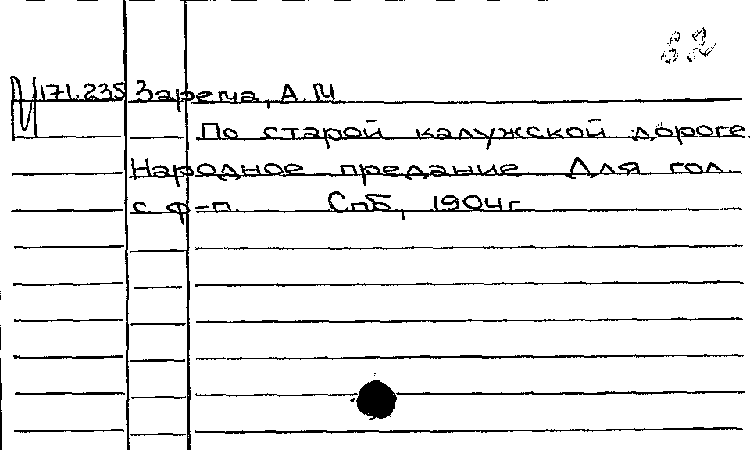 62
М 171.235 Зарема, А. М
По старой калужской дороге.
Народное предание Для гол.
с ф-п. Спб, 1904г